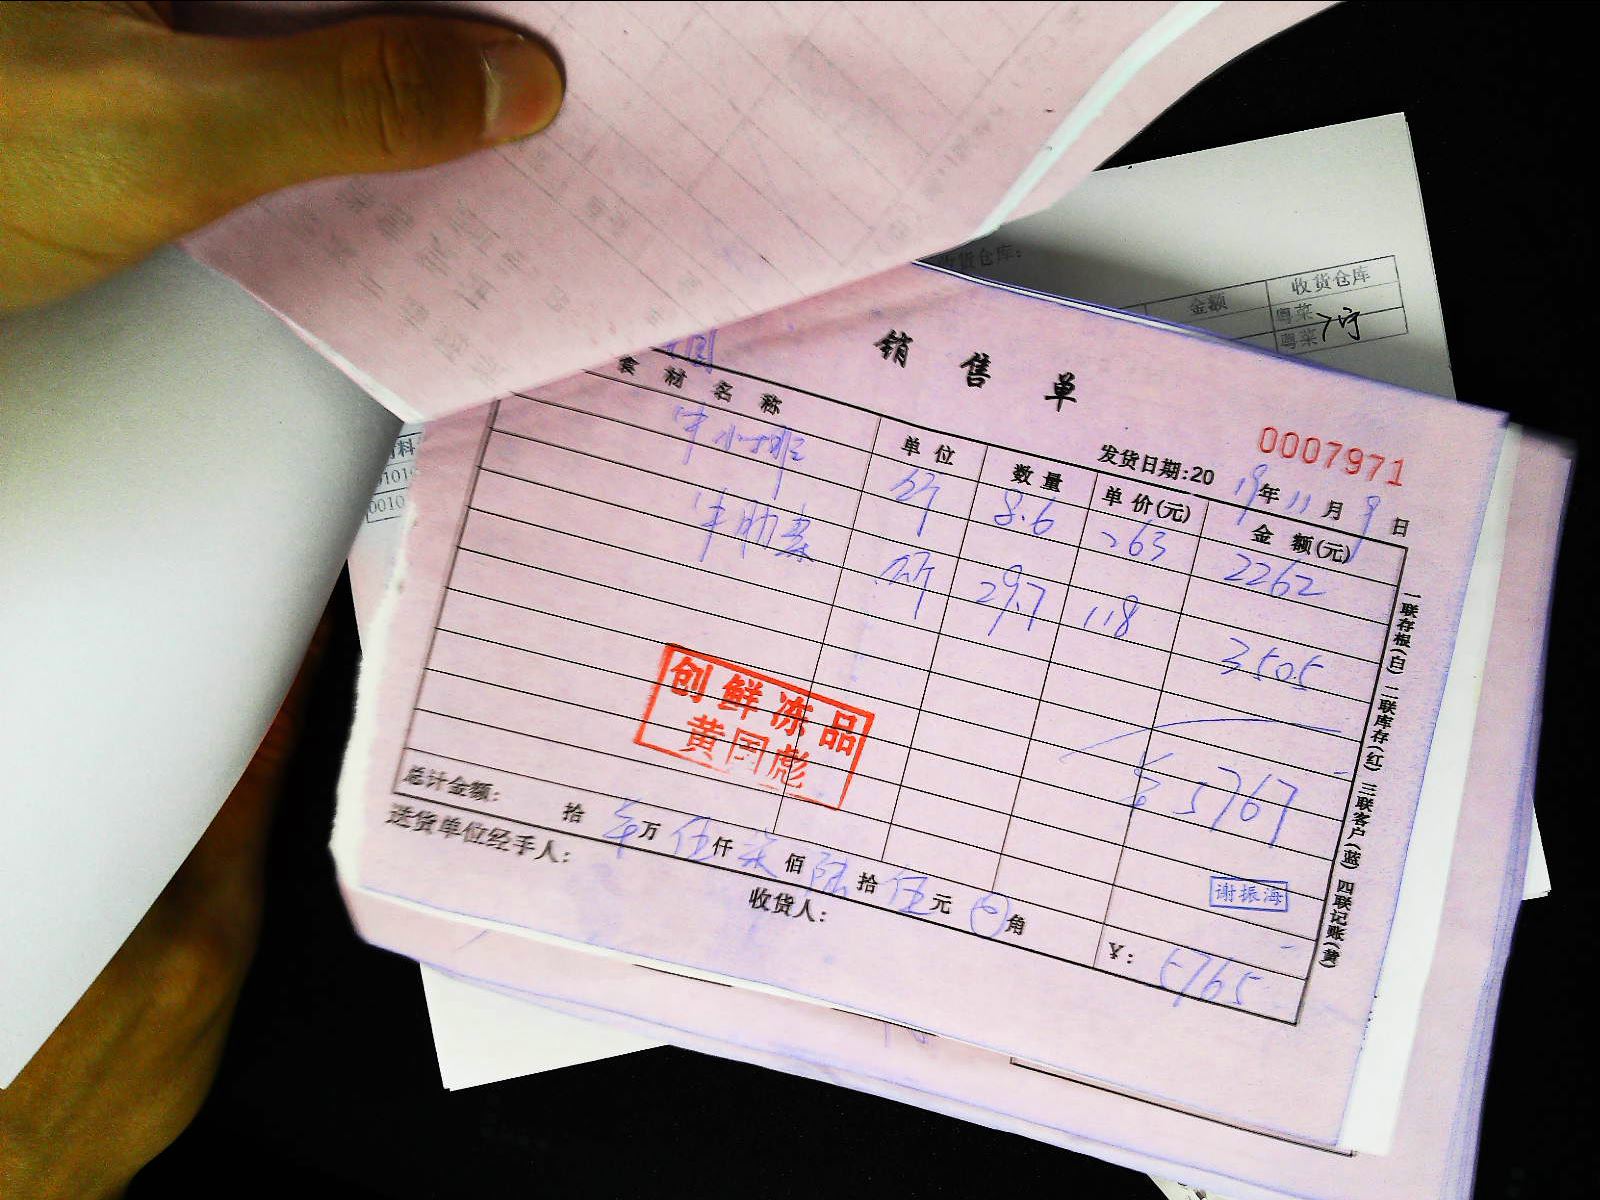 收货仓库:
金额 收货仓库
粤菜
粤菜
销售单
0007971
发货日期:2019年11月9日
食材名称 单位 数量 单价(元) 金额(元)
牛小排 斤 8.6 263 2262
牛肋条 斤 29.7 118 3505
5767
创鲜冻品
黄国彪
谢振海
总计金额: 拾 万伍仟柒佰陆拾伍元 角 ¥: 5765
送货单位经手人: 收货人:
一联存根(白) 二联库存(红) 三联客户(蓝) 四联记账(黄)